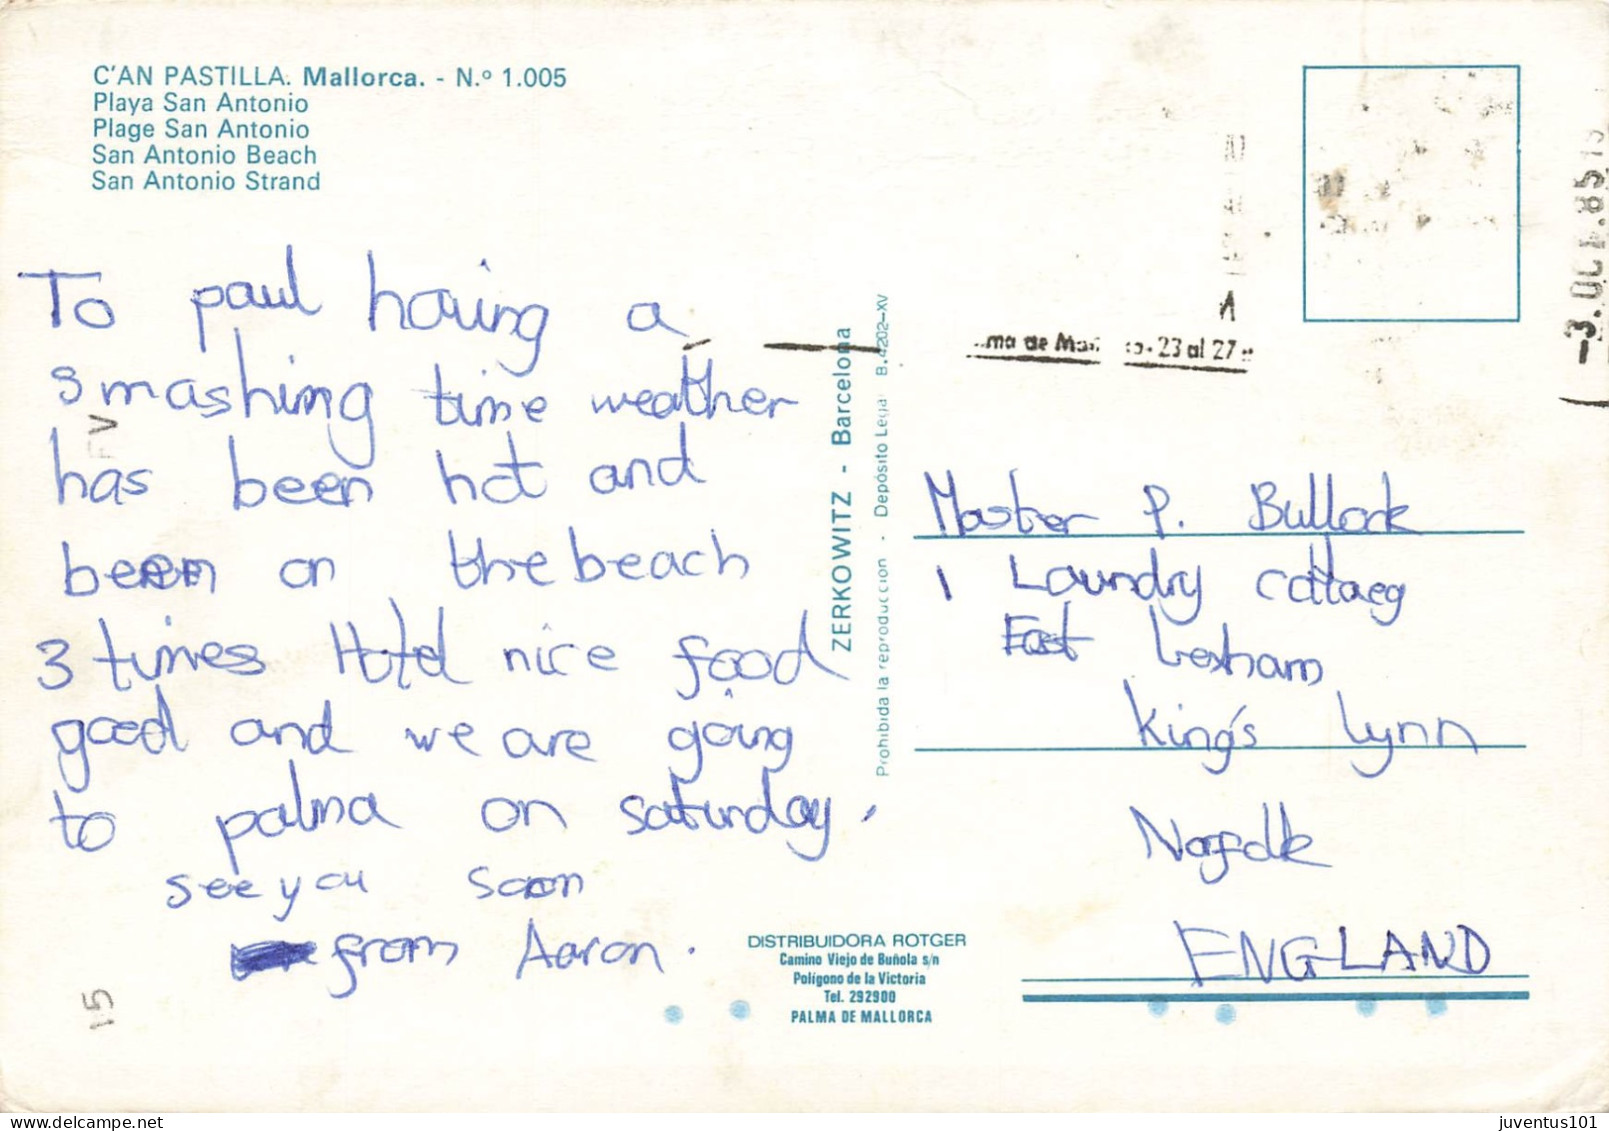 C'AN PASTILLA. Mallorca. - N.º 1.005
Playa San Antonio
Plage San Antonio
San Antonio Beach
San Antonio Strand
To paul having a
smashing time weather
has been hot and
been on the beach
3 times Hotel nice food
good and we are going
to palma on saturday,
see you soon
from Aaron.
15
ZERKOWITZ - Barcelona
Prohibida la reproducción - Depósito Legal B. 4202-XV
23 al 27
-3.OCT.85
Master P. Bullock
1 Laundry cottaeg
East Lexham
King's Lynn
Norfolk
ENGLAND
DISTRIBUIDORA ROTGER
Camino Viejo de Buñola s/n
Polígono de la Victoria
Tel. 292900
PALMA DE MALLORCA
juventus101